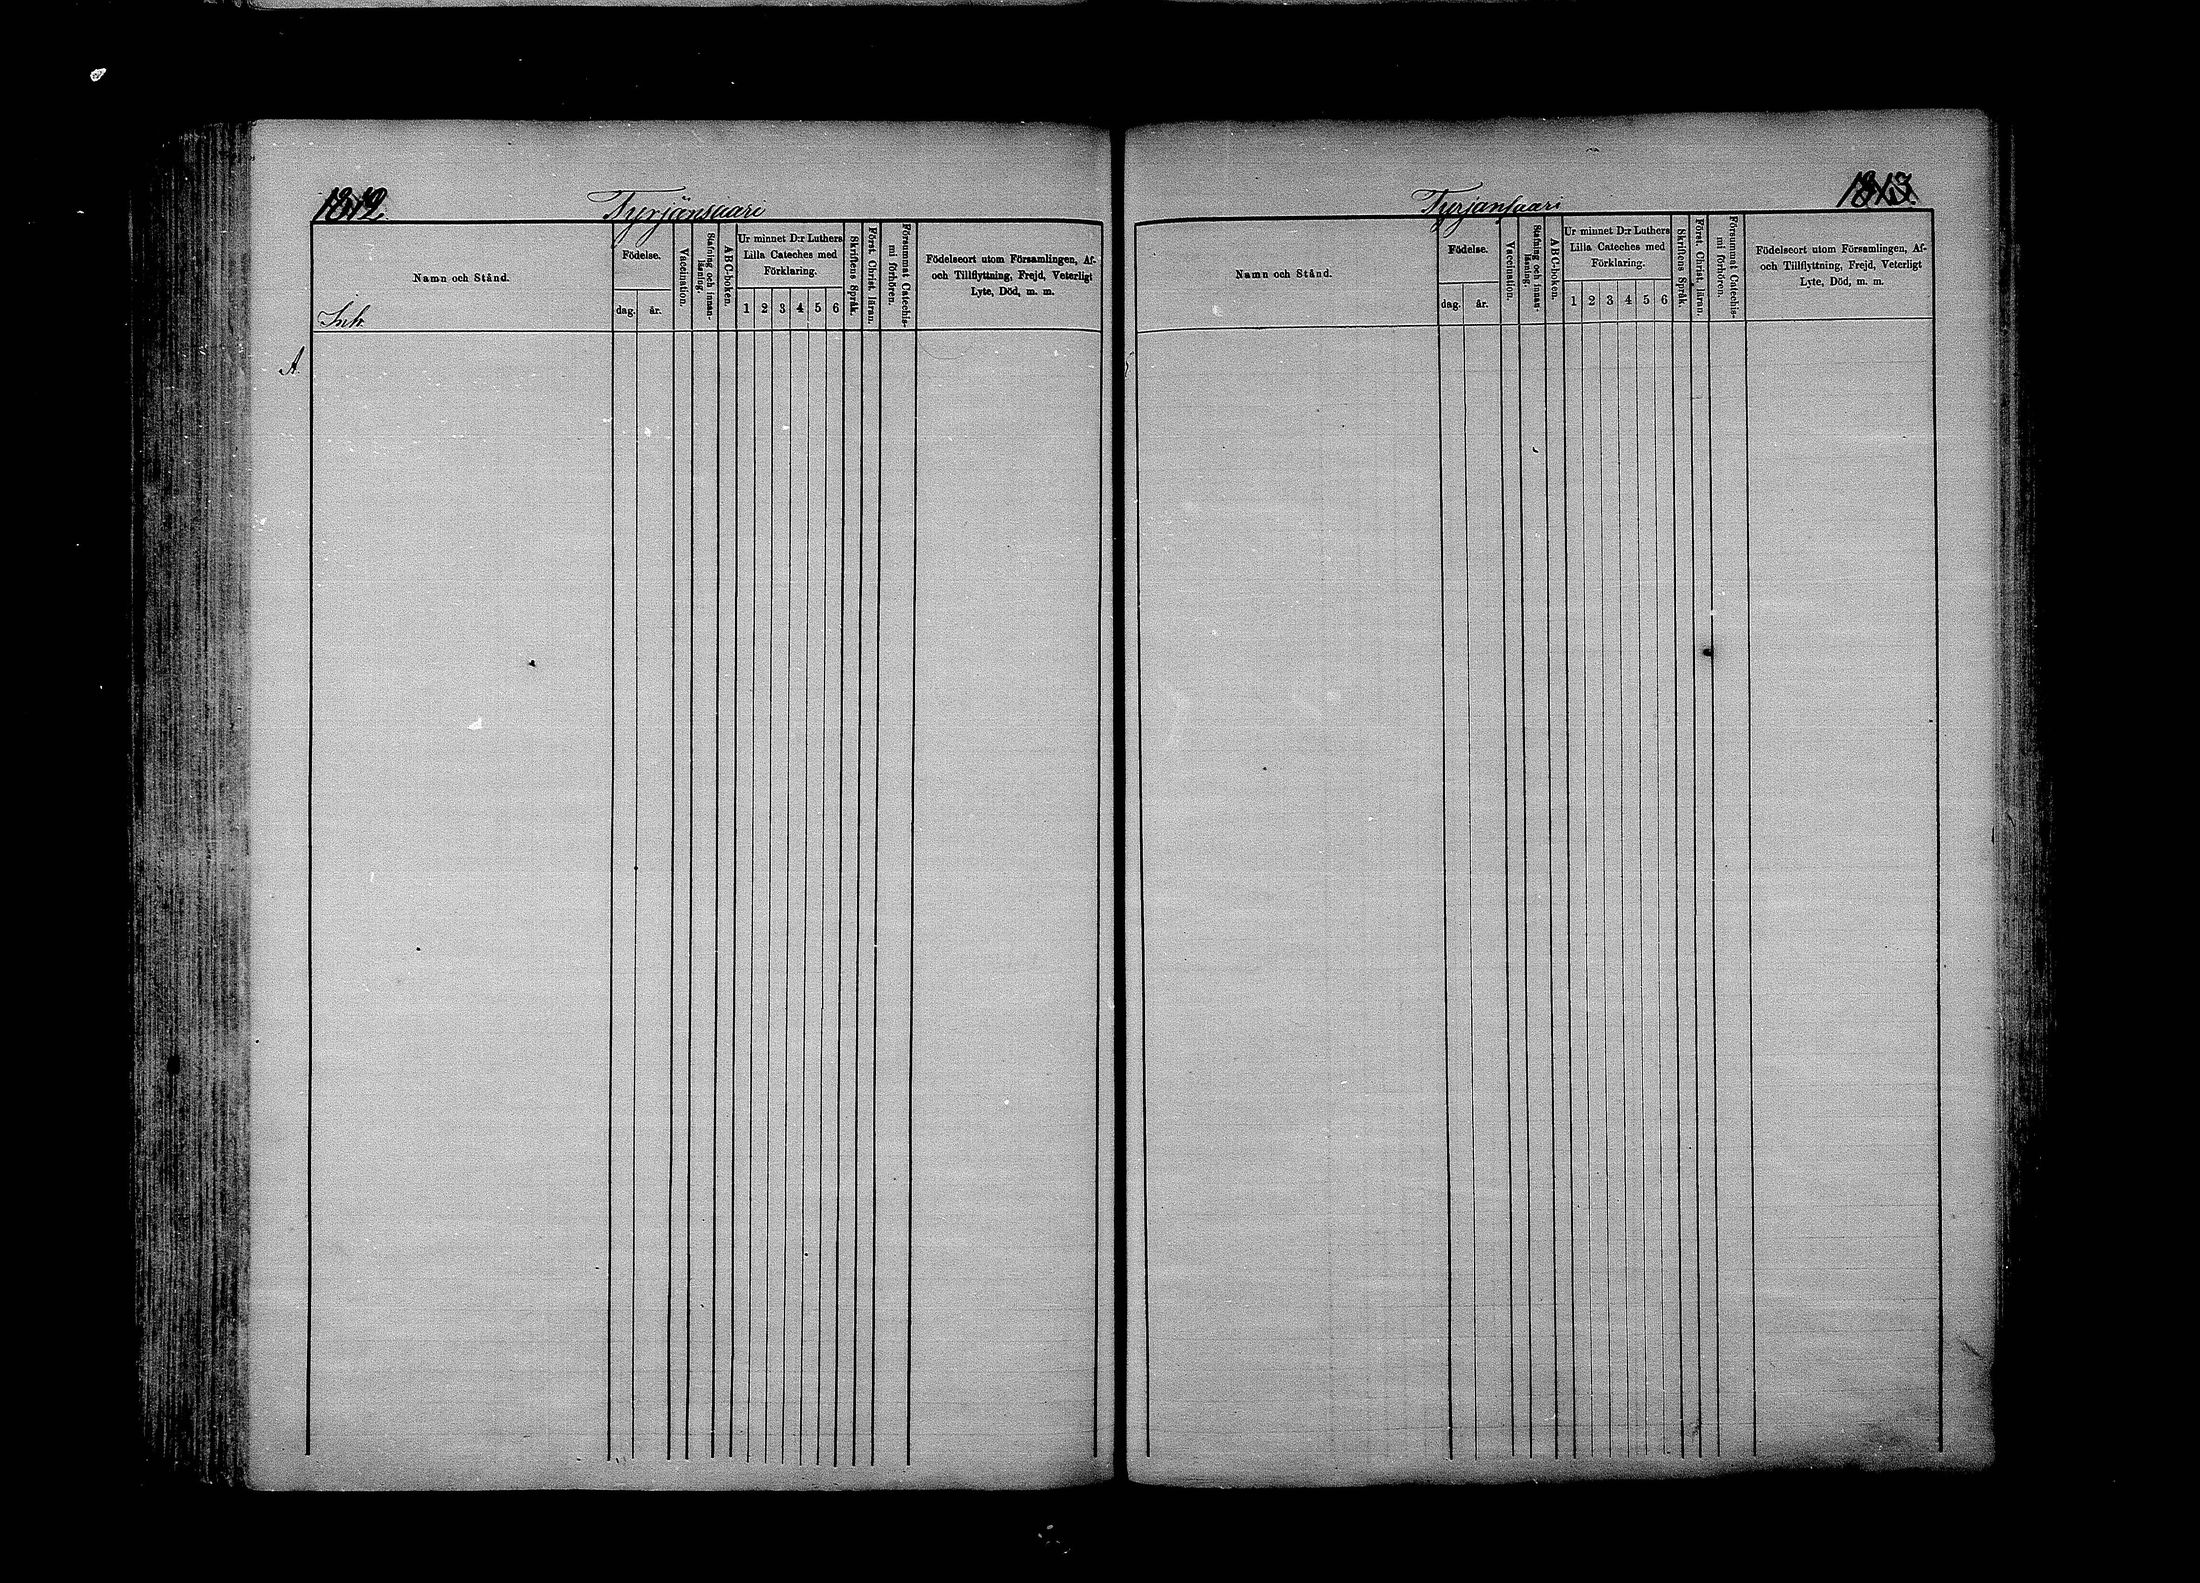 Tyrjänsaari
Namn och Stånd.
Födelse.
dag.
år.
Vaccination.
Stafning och innan-
läsning.
ABC-boken.
Ur minnet D:r Luthers
Lilla Cateches med
Förklaring.
1 2 3 4 5 6
Skriftens Språk.
Först. Christ. läran.
Försummat Catechis-
mi förhören.
Födelseort utom Församlingen, Af-
och Tillflyttning, Frejd, Veterligt
Lyte, Död, m. m.
Tyrjänsaari
Namn och Stånd.
Födelse.
dag.
år.
Vaccination.
Stafning och innan-
läsning.
ABC-boken.
Ur minnet D:r Luthers
Lilla Cateches med
Förklaring.
1 2 3 4 5 6
Skriftens Språk.
Först. Christ. läran.
Försummat Catechis-
mi förhören.
Födelseort utom Församlingen, Af-
och Tillflyttning, Frejd, Veterligt
Lyte, Död, m. m.